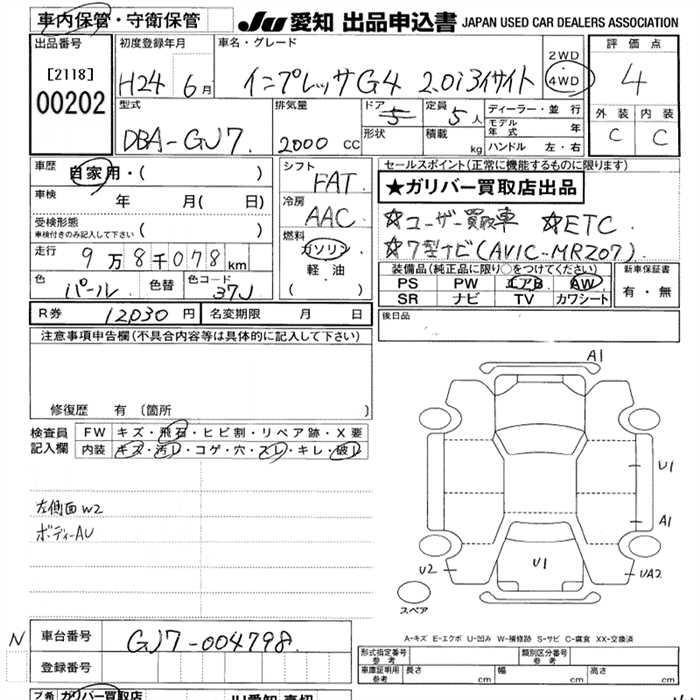 車内保管・守衛保管
JU 愛知 出品申込書 JAPAN USED CAR DEALERS ASSOCIATION
出品番号 初度登録年月 車名・グレード 2WD 4WD 評価点
[2118] H24 6月 インプレッサG4 2.0i アイサイト 4
00202
型式 排気量 ドア 5 定員 5人 ディーラー・並行 外装 内装
DBA-GJ7 2000 CC 形状 積載 kg モデル年式 年 C C
ハンドル 左・右
車歴 自家用・( ) シフト FAT セールスポイント(正常に機能するものに限ります)
車検 年 月( 日) 冷房 AAC ★ガリバー買取店出品
受検形態 車検付きのみ記入して下さい ( ) ☆ユーザー買取車 ☆ETC
走行 9万8千078km 燃料 ガソリン ☆7型ナビ(AVIC-MRZ07)
色 パール 色替 色コード 37J 軽油 ( )
装備品(純正品に限り○をつけてください) 新車保証書
PS PW エアB AW 有・無
SR ナビ TV カワシート
R券 12030円 名変期限 月 日 後日品
注意事項申告欄(不具合内容等は具体的に記入して下さい)
修復歴 有 (箇所 )
検査員記入欄 FW キズ・飛石・ヒビ割・リペア跡・X要
内装 キズ・汚レ・コゲ・穴・スレ・キレ・破レ
左側面W2
ボディーAU
A1
U1
A1
U1
U2
UA2
スペア
A-キズ E-エクボ U-凹み W-補修跡 S-サビ C-腐食 XX-交換済
N 車台番号 GJ7-004798
登録番号
形式指定番号 参考 類別区分番号 参考
車庫証明用 参考 長さ cm 幅 cm 高さ cm
ガリバー買取店
JU愛知